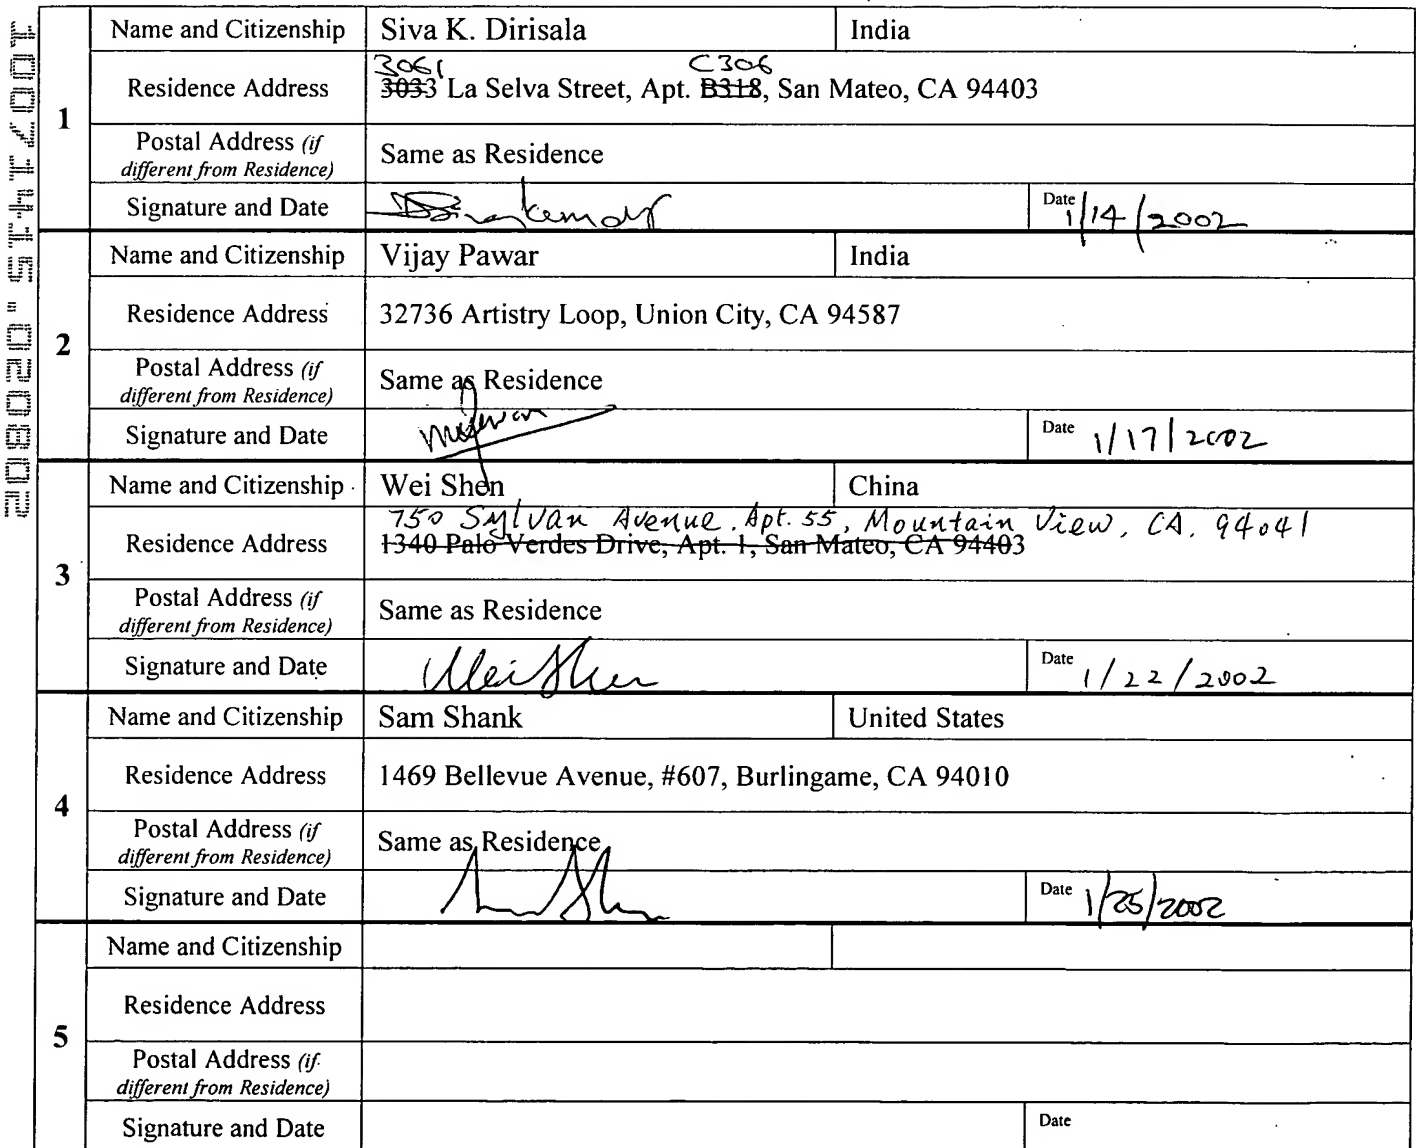 10071415.020802
1
Name and Citizenship Siva K. Dirisala India
3061 C306
Residence Address 3033 La Selva Street, Apt. B318, San Mateo, CA 94403
Postal Address (if
different from Residence) Same as Residence
Signature and Date Date 1/14/2002
2
Name and Citizenship Vijay Pawar India
Residence Address 32736 Artistry Loop, Union City, CA 94587
Postal Address (if
different from Residence) Same as Residence
Signature and Date Date 1/17/2002
3
Name and Citizenship Wei Shen China
750 Sylvan Avenue. Apt. 55, Mountain View, CA. 94041
Residence Address 1340 Palo Verdes Drive, Apt. 1, San Mateo, CA 94403
Postal Address (if
different from Residence) Same as Residence
Signature and Date Wei Shen Date 1/22/2002
4
Name and Citizenship Sam Shank United States
Residence Address 1469 Bellevue Avenue, #607, Burlingame, CA 94010
Postal Address (if
different from Residence) Same as Residence
Signature and Date Date 1/25/2002
5
Name and Citizenship
Residence Address
Postal Address (if
different from Residence)
Signature and Date Date